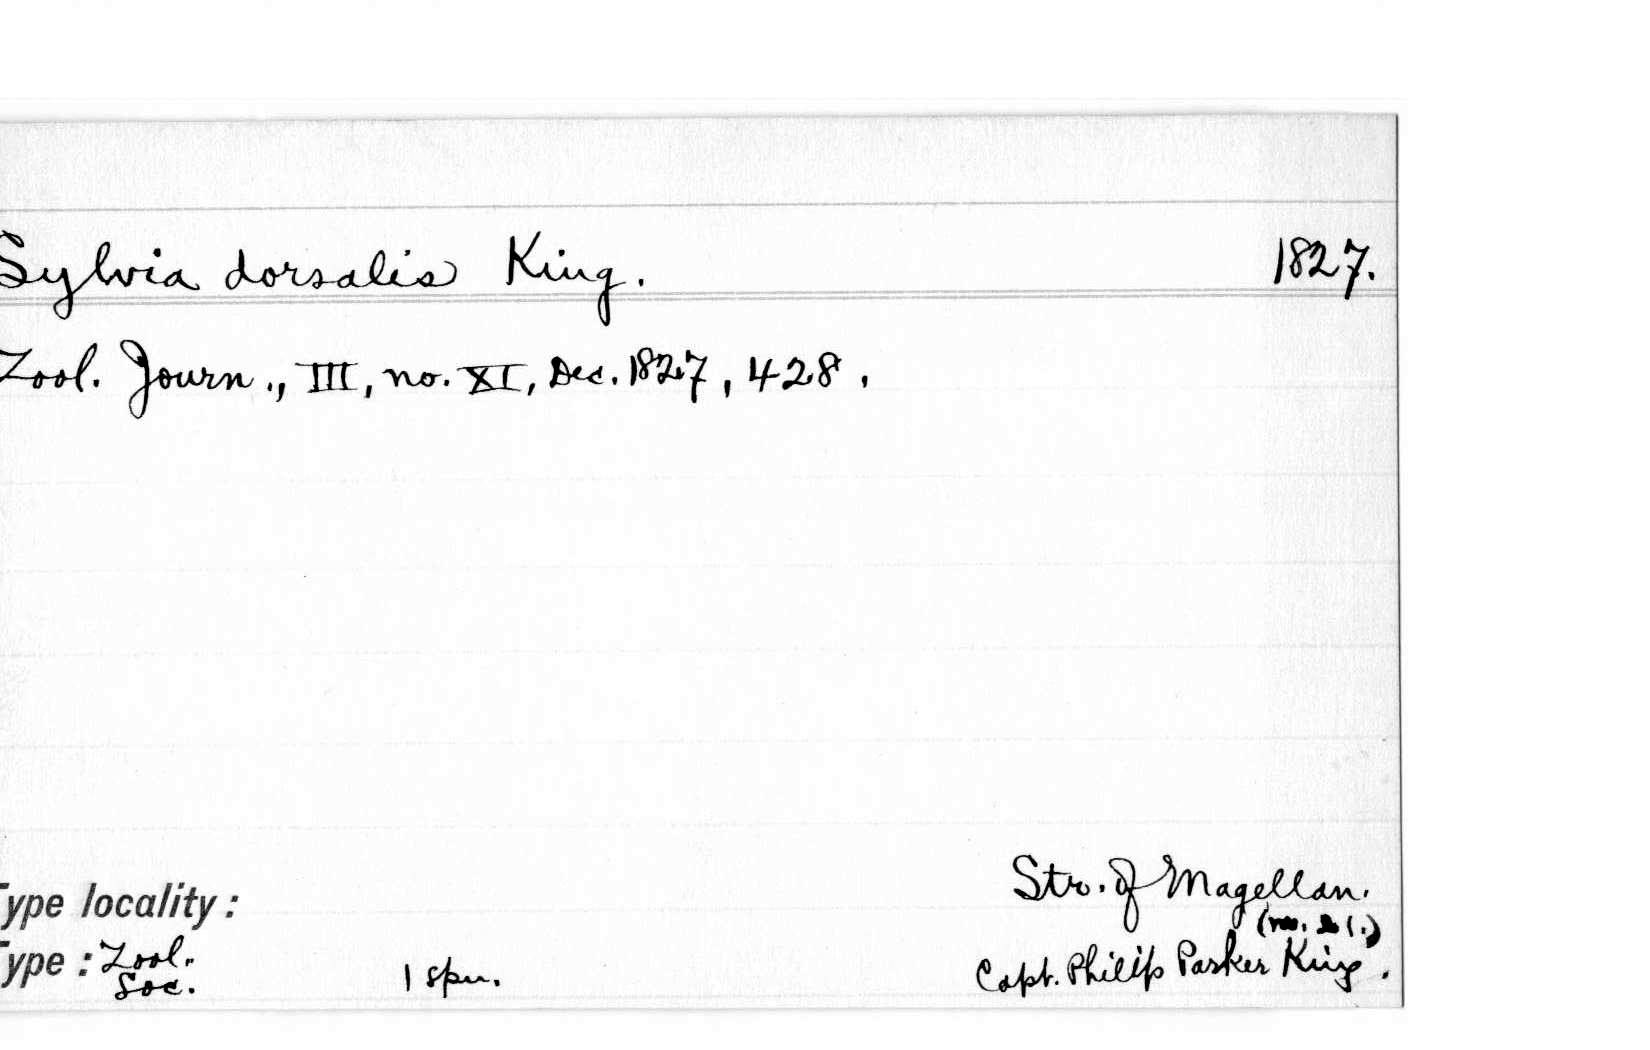 Sylvia dorsalis King. 1827.
Zool. Journ., III, no. XI, Dec. 1827, 428.
Type locality: Str. of Magellan.
Type: Zool. Soc. 1 spn. Capt. Philip Parker King.